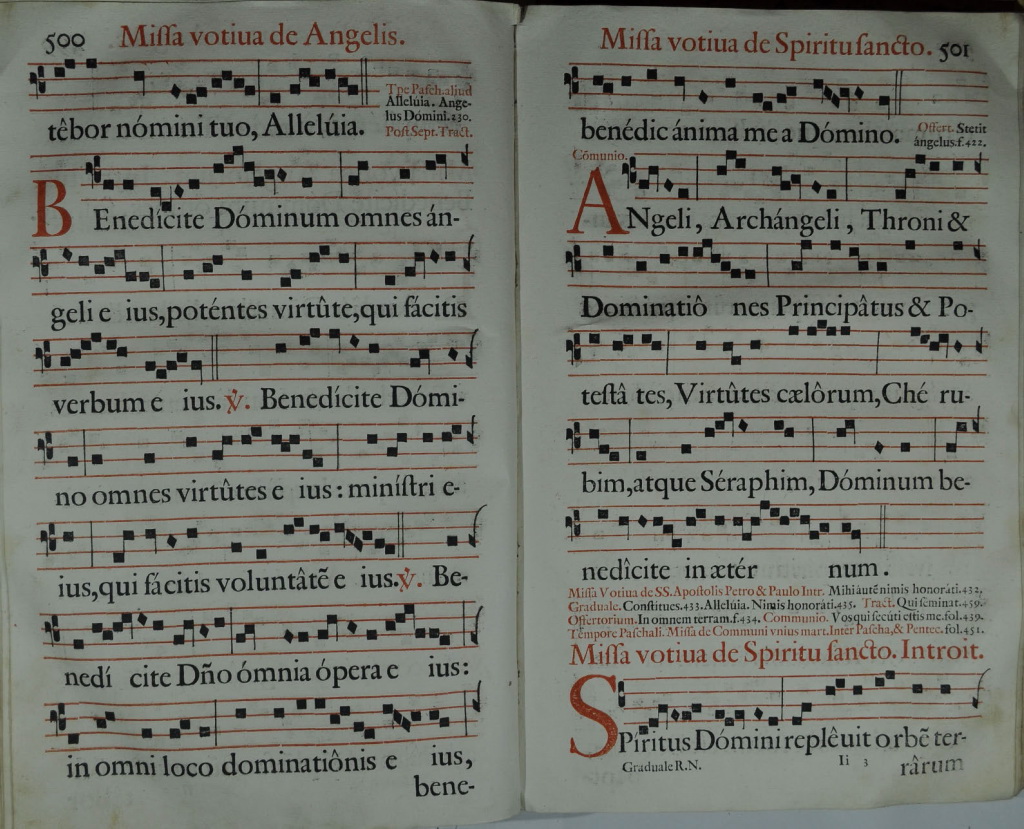 500 Missa votiua de Angelis.
Tpe Pasch. aliud
Allelúia. Ange-
lus Dómini. 230.
Post Sept. Tract.
têbor nómini tuo, Allelúia.
BEnedícite Dóminum omnes án-
geli e ius, poténtes virtûte, qui fácitis
verbum e ius. ℣. Benedícite Dómi-
no omnes virtûtes e ius: minístri e-
ius, qui fácitis voluntâtẽ e ius. ℣. Be-
nedí cite Dño ómnia ópera e ius:
in omni loco dominatiônis e ius,
bene-
Missa votiua de Spiritu sancto. 501
benédic ánima mea Dómino. Offert. Stetit
ángelus. f. 422.
Cómunio.
ANgeli, Archángeli, Throni &
Dominatiô nes Principâtus & Po-
testâ tes, Virtûtes cælôrum, Ché ru-
bim, atque Séraphim, Dóminum be-
nedîcite in ætér num.
Missa Votiua de SS. Apostolis Petro & Paulo Intr. Mihi áutẽ nimis honoráti. 432.
Graduale. Constítues. 433. Allelúia. Nimis honoráti. 435. Tract. Qui séminat. 459.
Offertorium. In omnem terram. f. 434. Communio. Vos qui secúti estis me. fol. 439.
Tẽmpore Paschali. Missa de Communi vnius mart. Inter Pascha, & Pentec. fol. 451.
Missa votiua de Spiritu sancto. Introit.
SPíritus Dómini replêuit orbẽ ter-
Graduale R. N. Ii 3 rârum